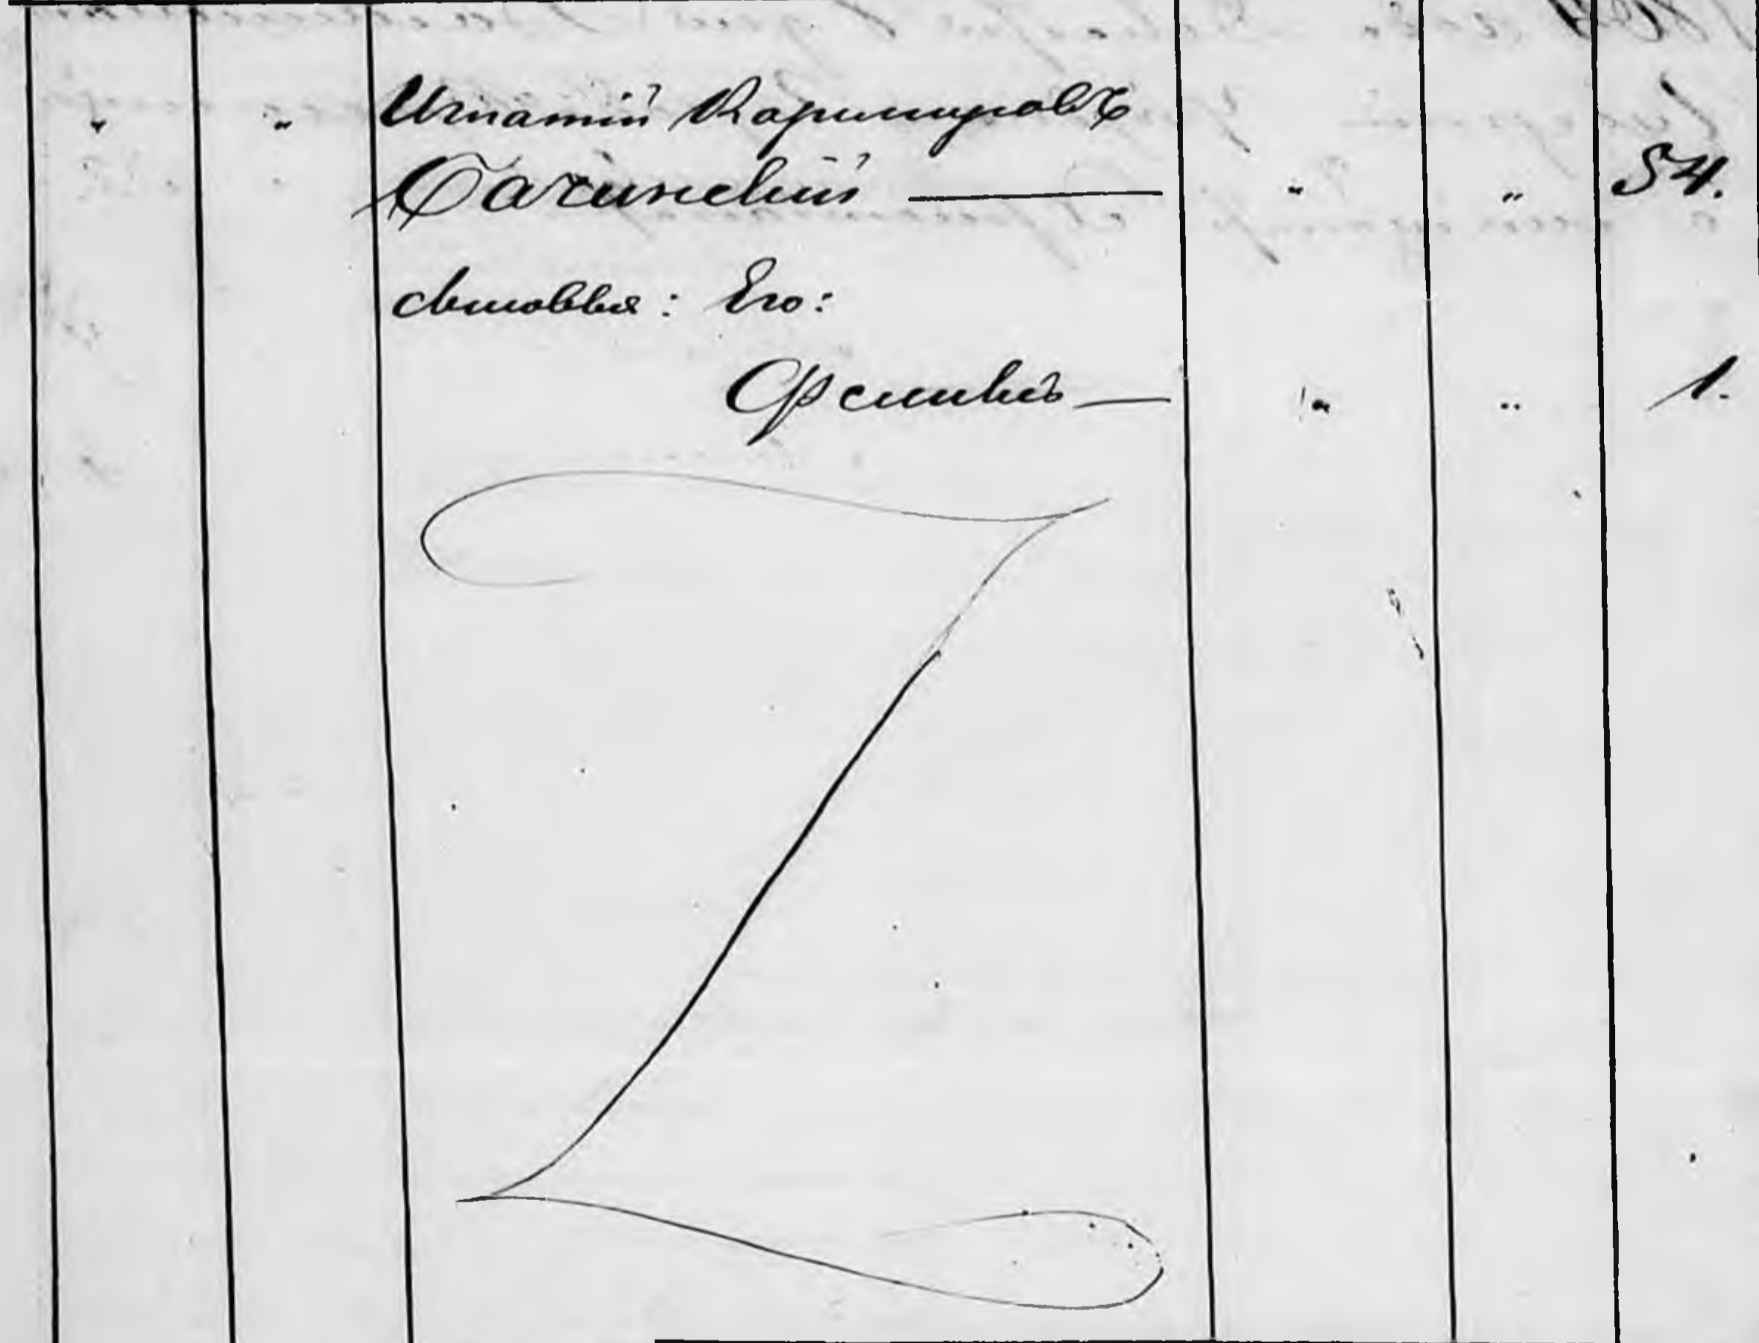 " " Игнатій Каримировъ
Сачинскій — " " 54.
сыновья: Его:
Феликсъ — " " 1.